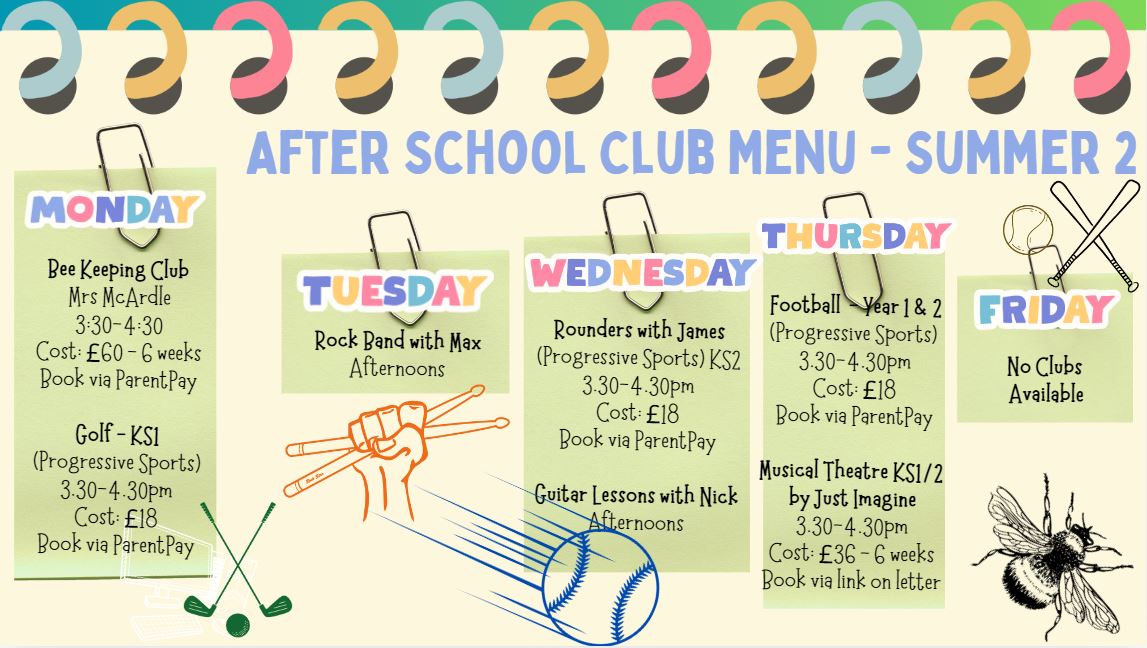 AFTER SCHOOL CLUB MENU - SUMMER 2
MONDAY
Bee Keeping Club
Mrs McArdle
3:30-4:30
Cost: £60 - 6 weeks
Book via ParentPay
Golf - KS1
(Progressive Sports)
3.30-4.30pm
Cost: £18
Book via ParentPay
TUESDAY
Rock Band with Max
Afternoons
WEDNESDAY
Rounders with James
(Progressive Sports) KS2
3.30-4.30pm
Cost: £18
Book via ParentPay
Guitar Lessons with Nick
Afternoons
THURSDAY
Football - Year 1 & 2
(Progressive Sports)
3.30-4.30pm
Cost: £18
Book via ParentPay
Musical Theatre KS1/2
by Just Imagine
3.30-4.30pm
Cost: £36 - 6 weeks
Book via link on letter
FRIDAY
No Clubs
Available